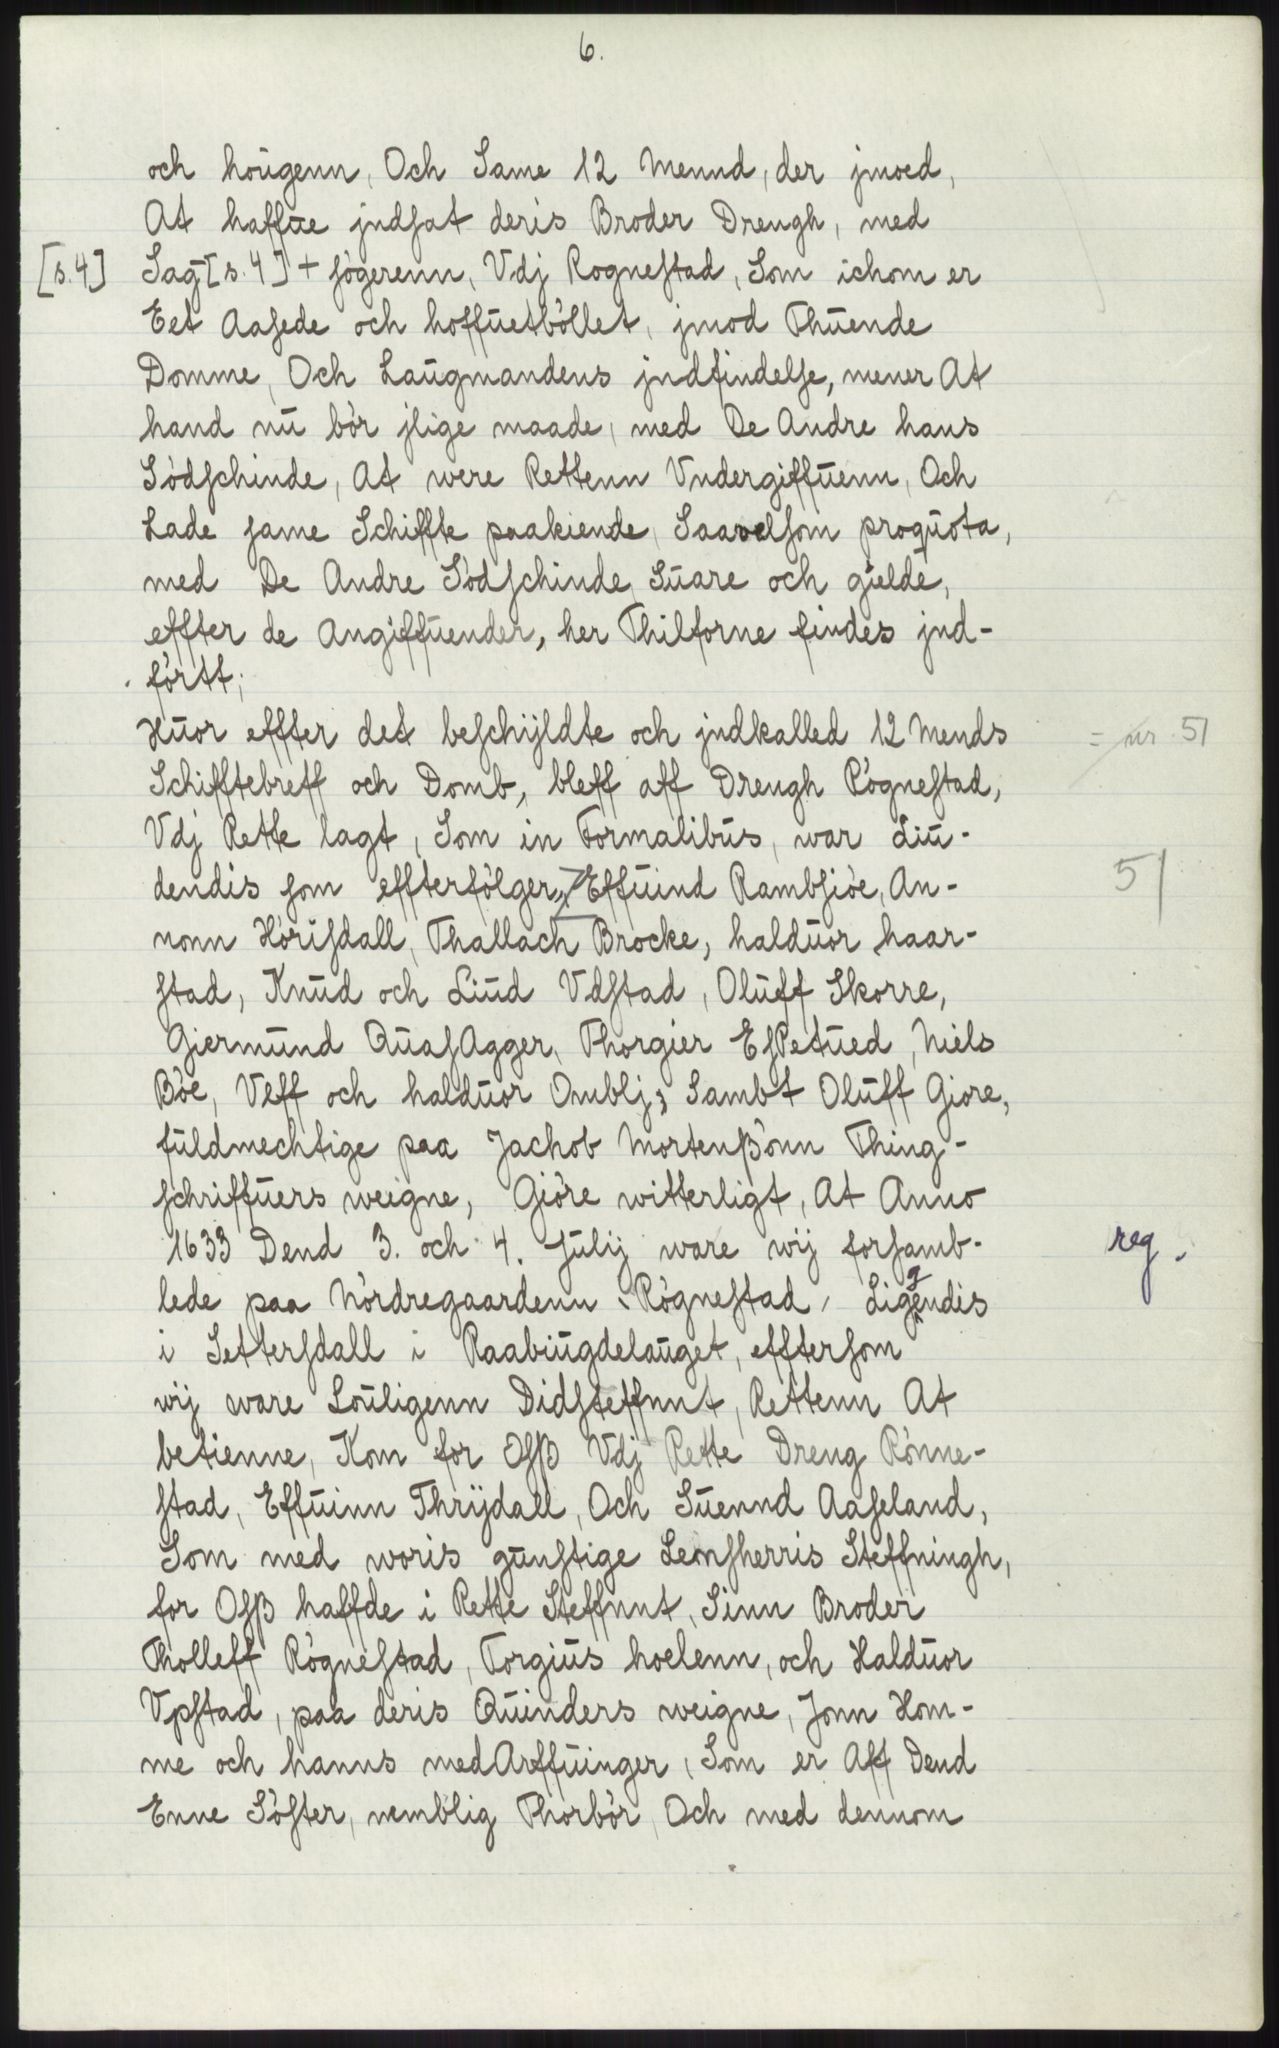 6.
och hoŭgenn, Och Same 12 Mennd, der jmoed,
At haffŭe jndsat deris Broder Drengh, med
[s.4] Sag [s.4] + søgerenn, Vdj Rognestad, Som ichom er
Eet Aasede och hoffŭetbøllet, jmod Thŭende
Domme, Och Laŭgmandens jndfindelse, mener At
hand nŭ bør jlige maade, med De Andre hans
Sødschinde, At were Rettenn Vndergiffŭenn, Och
Lade same Schiffte paakiende, Saavelsom proqŭota,
med De Andre Sødschinde, Sŭare och gielde,
effter de Angiffŭender, her Thilforne findes jnd-
førtt;
Hŭor effter det beschijldte och jndkalled 12 Mends = nr. 51
Schifftebreff och Domb, bleff aff Drengh Røgnestad,
Vdj Rette lagt, Som in Formalibŭs, war Liŭ-
dendis som effterfølger, Effŭind Rambsiøe, An- 51
nonn Hørisdall, Thallach Brocke, haldŭor haar-
stad, Knŭd och Liŭd Vdstad, Olŭff Skorre,
Giermŭnd Qŭasagger, Thorgier EsPetŭed, Niels
Bøe, Vlff och haldŭor Omblj; Sambt Olŭff Giøre,
fŭldmechtige paa Jachob Mortenßønn Thing-
schriffŭers weigne, Giøre witterligt, At Anno
1633 Dend 3. och 4. Jŭlij ware wij forsamb- reg.
lede paa Nørdregaardenn Røgnestad, Liggendis
i Settersdall i Raabiŭgdelaŭget, efftersom
wij ware Loŭligenn Didsteffnnt, Rettenn At
betienne, Kom for Osß Vdj Rette Dreng Rønne-
stad, Effŭinn Thrijdall, Och Sŭennd Aaseland,
Som med woris gŭnstige Lensherris Steffningh,
for Osß haffde i Rette Steffnnt, Sinn Broder
Tholleff Røgnestad, Torgiŭs hoelenn, och Haldŭor
Vpstad, paa deris Qŭinders weigne, Jonn Hom-
me och hanns medArffŭinger, Som er Aff Dend
Enne Søster, nemblig Thorbør, Och med dennom